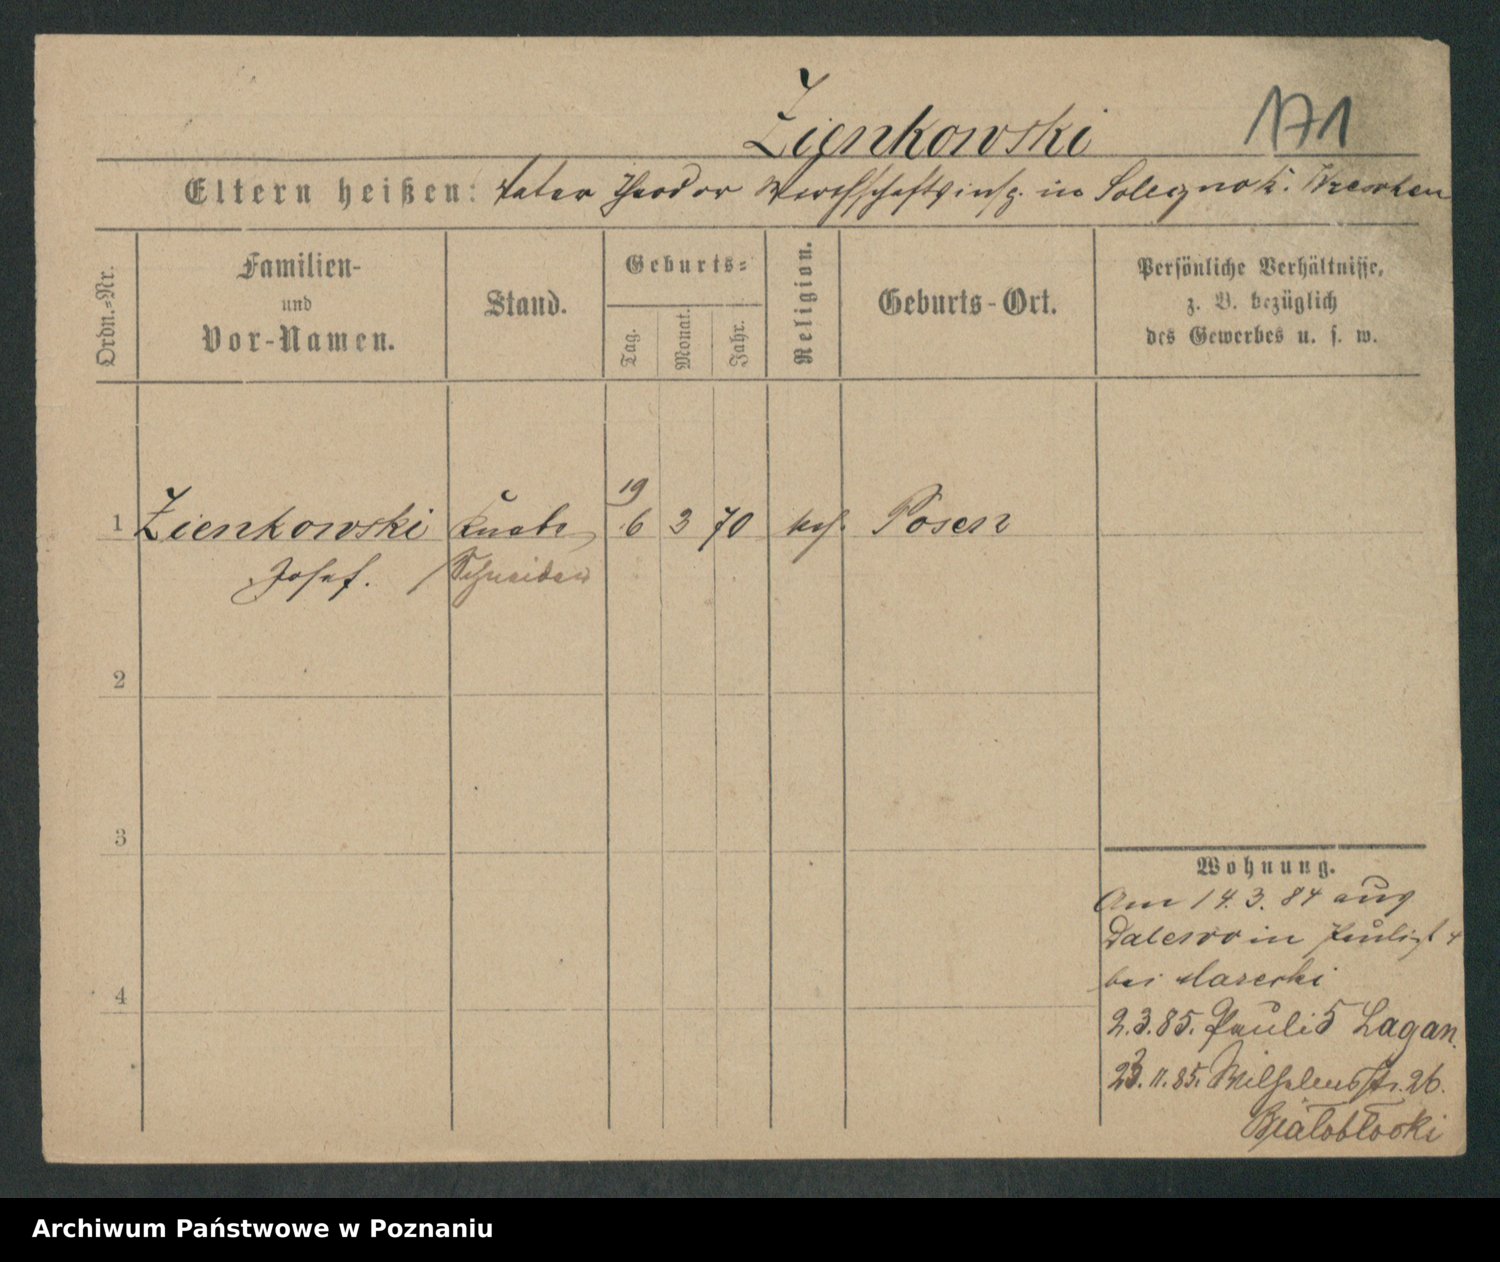 Zienkowski 171
Eltern heißen: Vater Theodor Werthschaftsinsp. in Soleczno K. Wreschen
Ordn.-Nr.
Familien-
und
Vor-Namen.
Stand.
Geburts-
Tag.
Monat.
Jahr.
Religion.
Geburts-Ort.
Persönliche Verhältnisse,
z. B. bezüglich
des Gewerbes u. s. w.
19
1 Zienkowski Knabe 6 3 70 kath. Posen
Josef. / Schneider
2
3
4
Wohnung.
Am 14.3.84 aus
Dalewo in
bei
2.3.85. Pauli 5 Lagan.
23.11.85. Wilhelmstr. 26.
Białobłocki
Archiwum Państwowe w Poznaniu